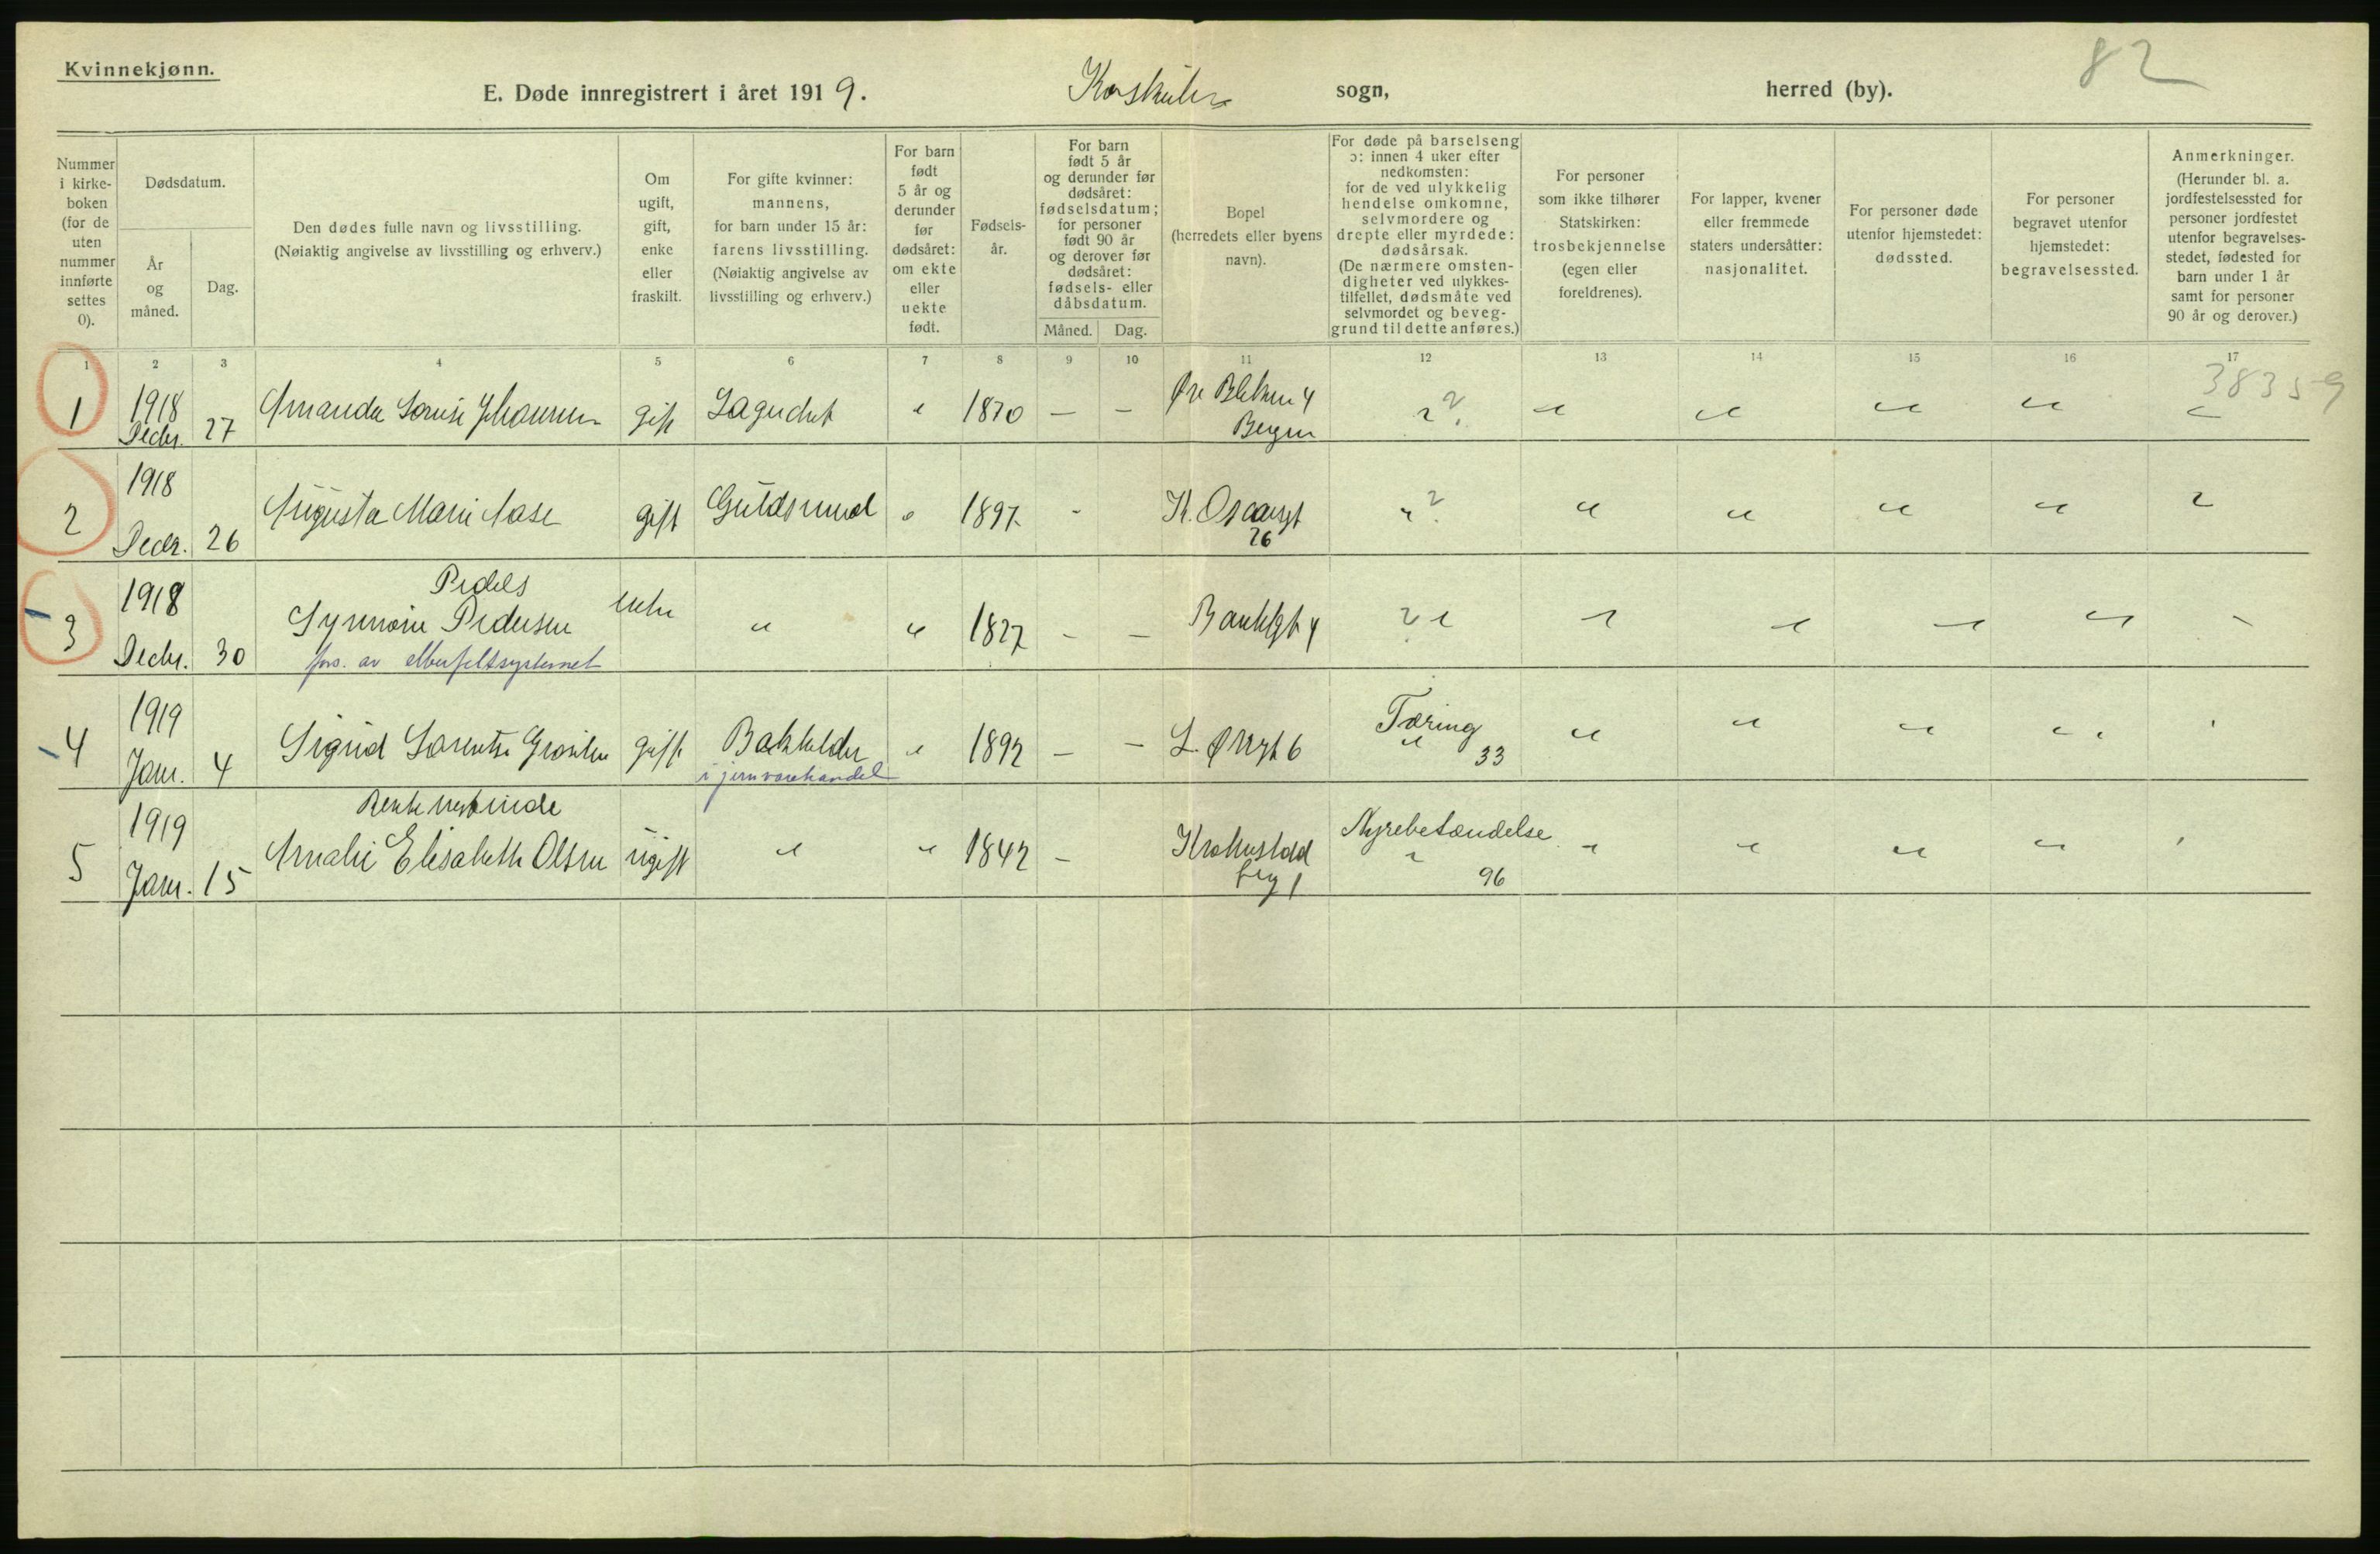 Kvinnekjønn.
82
E. Døde innregistrert i året 1919. Korskirken sogn, herred (by).
Nummer i kirkeboken (for de uten nummer innførte settes 0).
Dødsdatum.
År og måned.
Dag.
Den dødes fulle navn og livsstilling.
(Nøiaktig angivelse av livsstilling og erhverv.)
Om ugift, gift, enke eller fraskilt.
For gifte kvinner: mannens, for barn under 15 år: farens livsstilling.
(Nøiaktig angivelse av livsstilling og erhverv.)
For barn født 5 år og derunder før dødsåret: om ekte eller uekte født.
Fødselsår.
For barn født 5 år og derunder før dødsåret: fødselsdatum; for personer født 90 år og derover før dødsåret: fødsels- eller dåbsdatum.
Måned. Dag.
Bopel
(herredets eller byens navn).
For døde på barselseng ɔ: innen 4 uker efter nedkomsten: for de ved ulykkelig hendelse omkomne, selvmordere og drepte eller myrdede: dødsårsak.
(De nærmere omstendigheter ved ulykkestilfellet, dødsmåte ved selvmordet og beveggrund til dette anføres.)
For personer som ikke tilhører Statskirken: trosbekjennelse (egen eller foreldrenes).
For lapper, kvener eller fremmede staters undersåtter: nasjonalitet.
For personer døde utenfor hjemstedet: dødssted.
For personer begravet utenfor hjemstedet: begravelsessted.
Anmerkninger.
(Herunder bl. a. jordfestelsessted for personer jordfestet utenfor begravelsesstedet, fødested for barn under 1 år samt for personer 90 år og derover.)
1 2 3 4 5 6 7 8 9 10 11 12 13 14 15 16 17
38359
1 1918 Decbr. 27 Amanda Lovise Johannesen gift " 1870 — — Øvre 4 Bergen " ? " " " " "
2 1918 Decbr. 26 Augusta Marie Aase gift Guldsmed " 1897 - K. Oscarsgt 26 " ? " " " " "
3 1918 Decbr. 30 Pedels
Synnøve Pedersen enke " " 1827 – – 4 ? " " " " " "
fors. av elberfeltsystemet
4 1919 Janr. 4 Sigrid gift Bokholder " 1892 — — L. Øvregt 6 Tæring " 33 " " " "
i jernvarehandel
5 1919 Janr. 15 Amalie Elisabeth Olsen ugift " " 1842 — Krohnstad 1 Nyrebetændelse " 96 " " " "